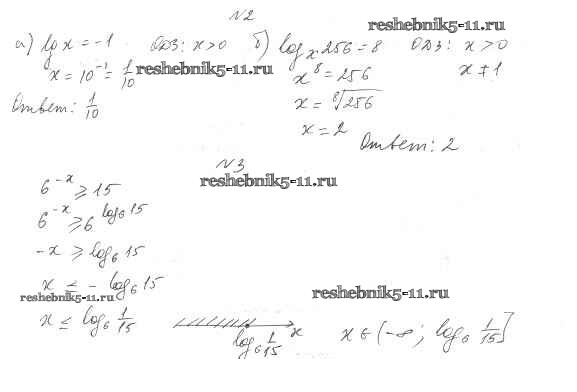 №2
reshebnik5-11.ru
а) lg x = -1 ОДЗ: x>0 б) log_x 256 = 8 ОДЗ: x>0
x = 10^{-1} = 1/10 reshebnik5-11.ru x^8 = 256 x ≠ 1
Ответ: 1/10 x = \sqrt[8]{256}
x = 2
Ответ: 2
№3
reshebnik5-11.ru
6^{-x} ≥ 15
6^{-x} ≥ 6^{log_6 15}
-x ≥ log_6 15
x ≤ - log_6 15
reshebnik5-11.ru reshebnik5-11.ru
x ≤ log_6 1/15 log_6 1/15 x x ∈ (-∞; log_6 1/15]